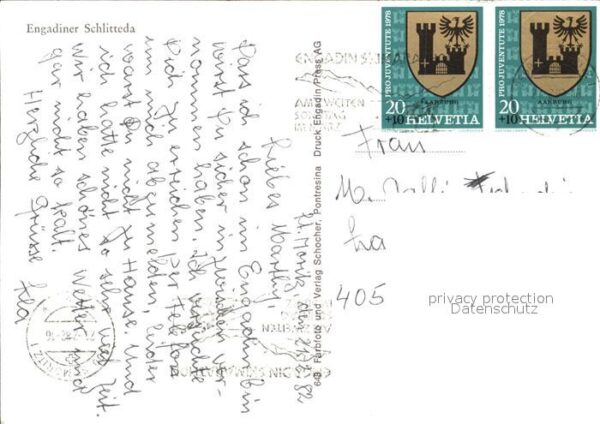 Engadiner Schlitteda
St. Moritz, den 21.2.82
Liebes Marthy,
Dass ich schon im Engadin bin
wirst Du sicher inzwischen ver-
nommen haben. Ich versuchte
Dich zu erreichen per Telefon
um mich abzumelden, leider
warst Du nicht zu Hause und
ich hatte nicht so sehr viel Zeit.
Wir haben schönes Wetter und
gar nicht so kalt.
Herzliche Grüsse
643 Farbfoto und Verlag Schocher, Pontresina Druck Engadin Press AG
PRO JUVENTUTE 1978
AARBURG
20
+10 HELVETIA
PRO JUVENTUTE 1978
AARBURG
20
+10 HELVETIA
Frau
405
privacy protection
Datenschutz